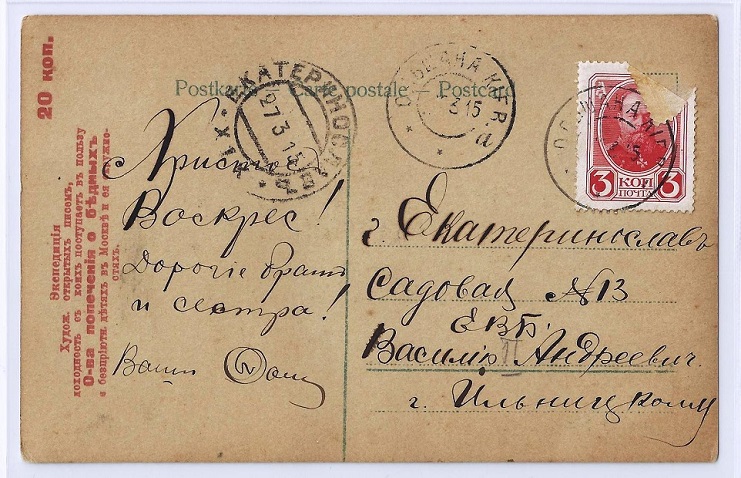 20 коп.
Экспедиція
Худож. открытыхъ писем,
доходность съ коихъ поступаетъ въ пользу
О-ва попеченія о бѣдныхъ
и безпріютн. дѣтяхъ въ Москвѣ и ея окружно-
стяхъ.
Postkarte Carte postale Postcard
ЕКАТЕРИНОСЛАВЪ
27 3 15
3 15
3 КОП 3
ПОЧТА
Христосъ
Воскресъ!
Дорогіе братъ
и сестра!
Ваши
г. Екатеринославъ
Садовая №13
ЕВБ.
Василію Андреевич.
г. Ильницкому